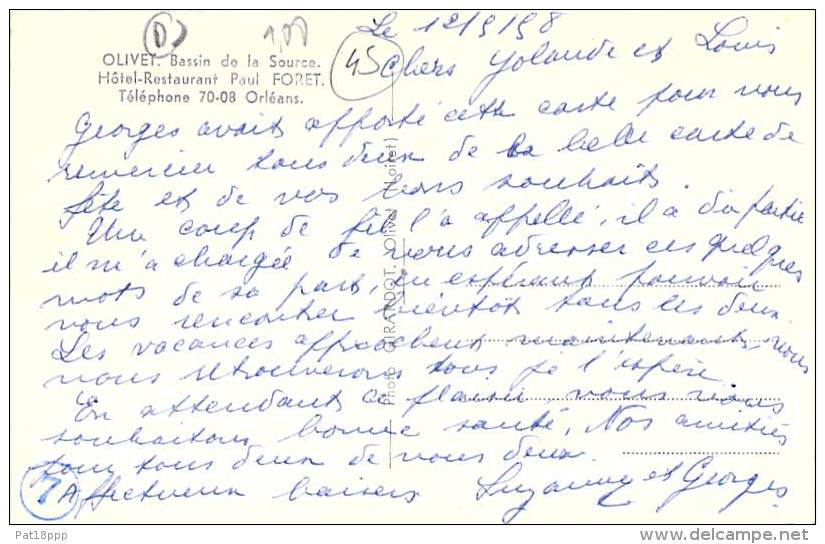 Le 12/9/98
D
1,00
OLIVET. Bassin de la Source.
Hôtel-Restaurant Paul FORET.
Téléphone 70-08 Orléans.
45
Chers Yolande et Louis
Georges avait apporté cette carte pour vous
remercier tous deux de la belle carte de
fête et de vos bons souhaits.
Un coup de fil l'a appellé, il a dû partir
il m'a chargée de vous adresser ces quelques
mots de sa part, en espérant pouvoir
vous rencontrer bientôt tous les deux.
Les vacances approchent maintenant, nous
nous retrouverons tous je l'espère.
En attendant ce plaisir, vous nous
souhaitons bonne santé. Nos amitiés
pour tous deux de nous deux.
Affectueux baisers Suzanne et Georges
7
Photo GIRARDOT, Olivet (Loiret)
Pat18ppp
www.delcampe.net